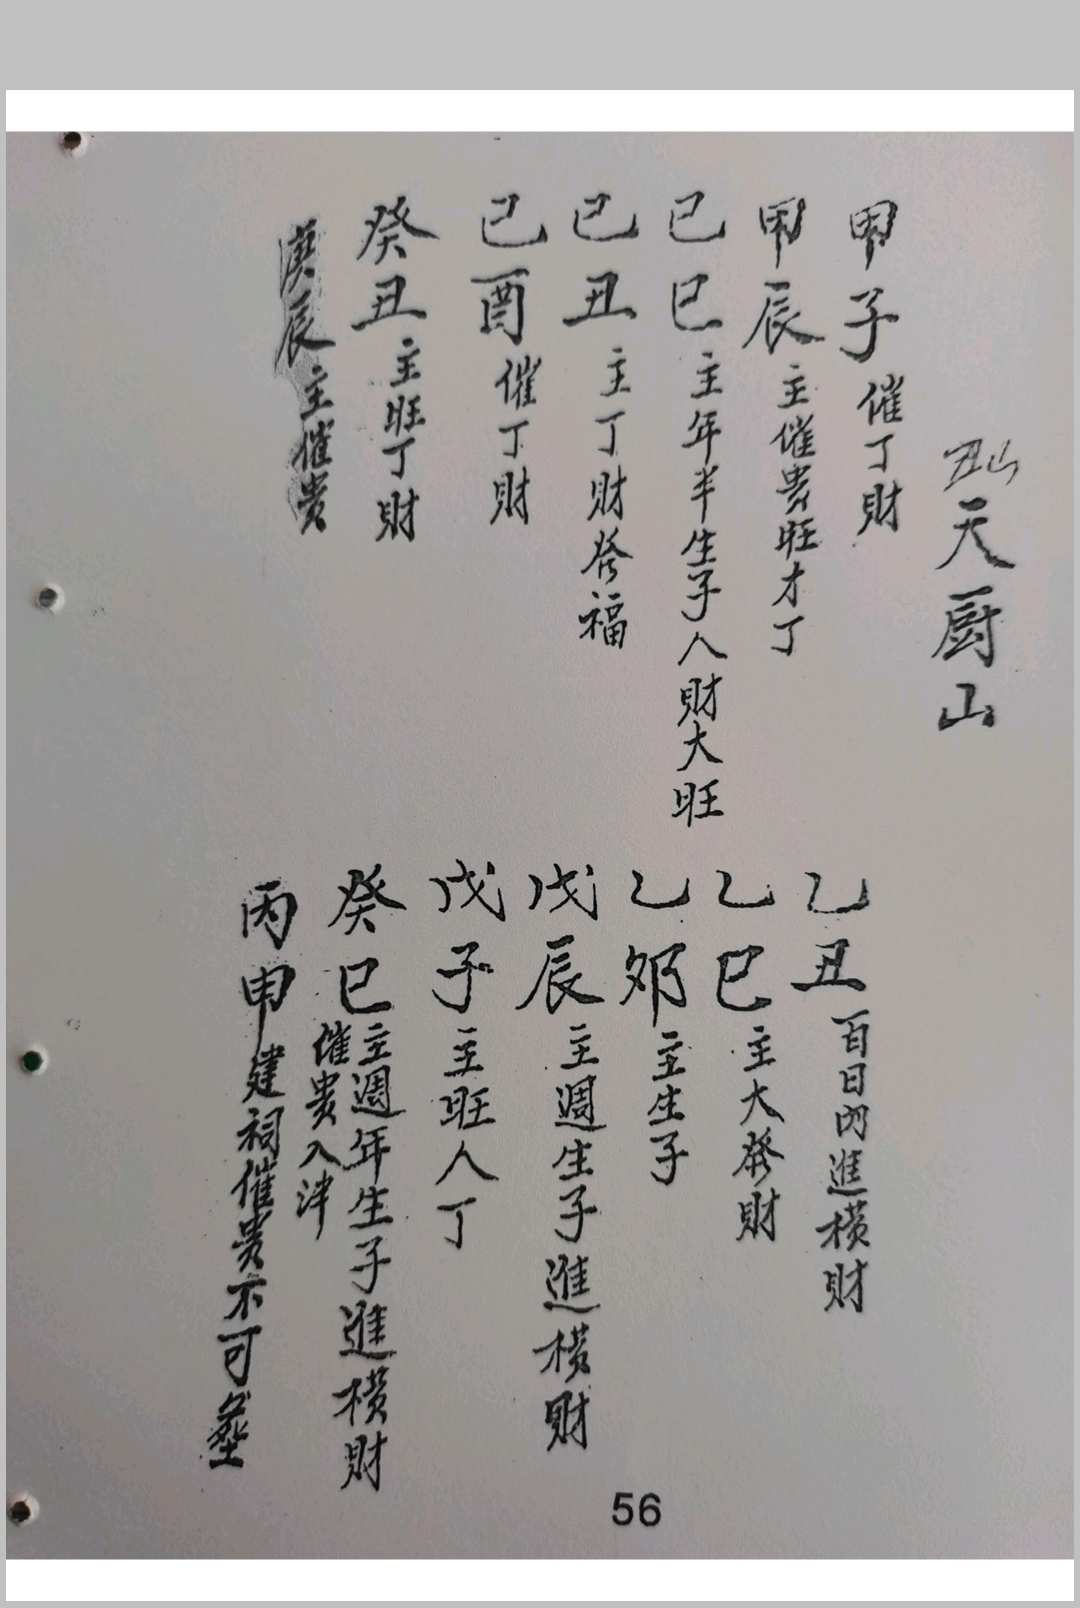 丑山
天厨山
甲子催丁財
甲辰主催貴旺才丁
己巳主年半生子人財大旺
己丑主丁財發福
己酉催丁財
癸丑主旺丁財
庚辰主催貴
乙丑百日内進横財
乙巳主大發財
乙夘主生子
戊辰主週生子進横財
戊子主旺人丁
癸巳主週年生子進横財
催貴入泮
丙申建祠催貴不可塟
56